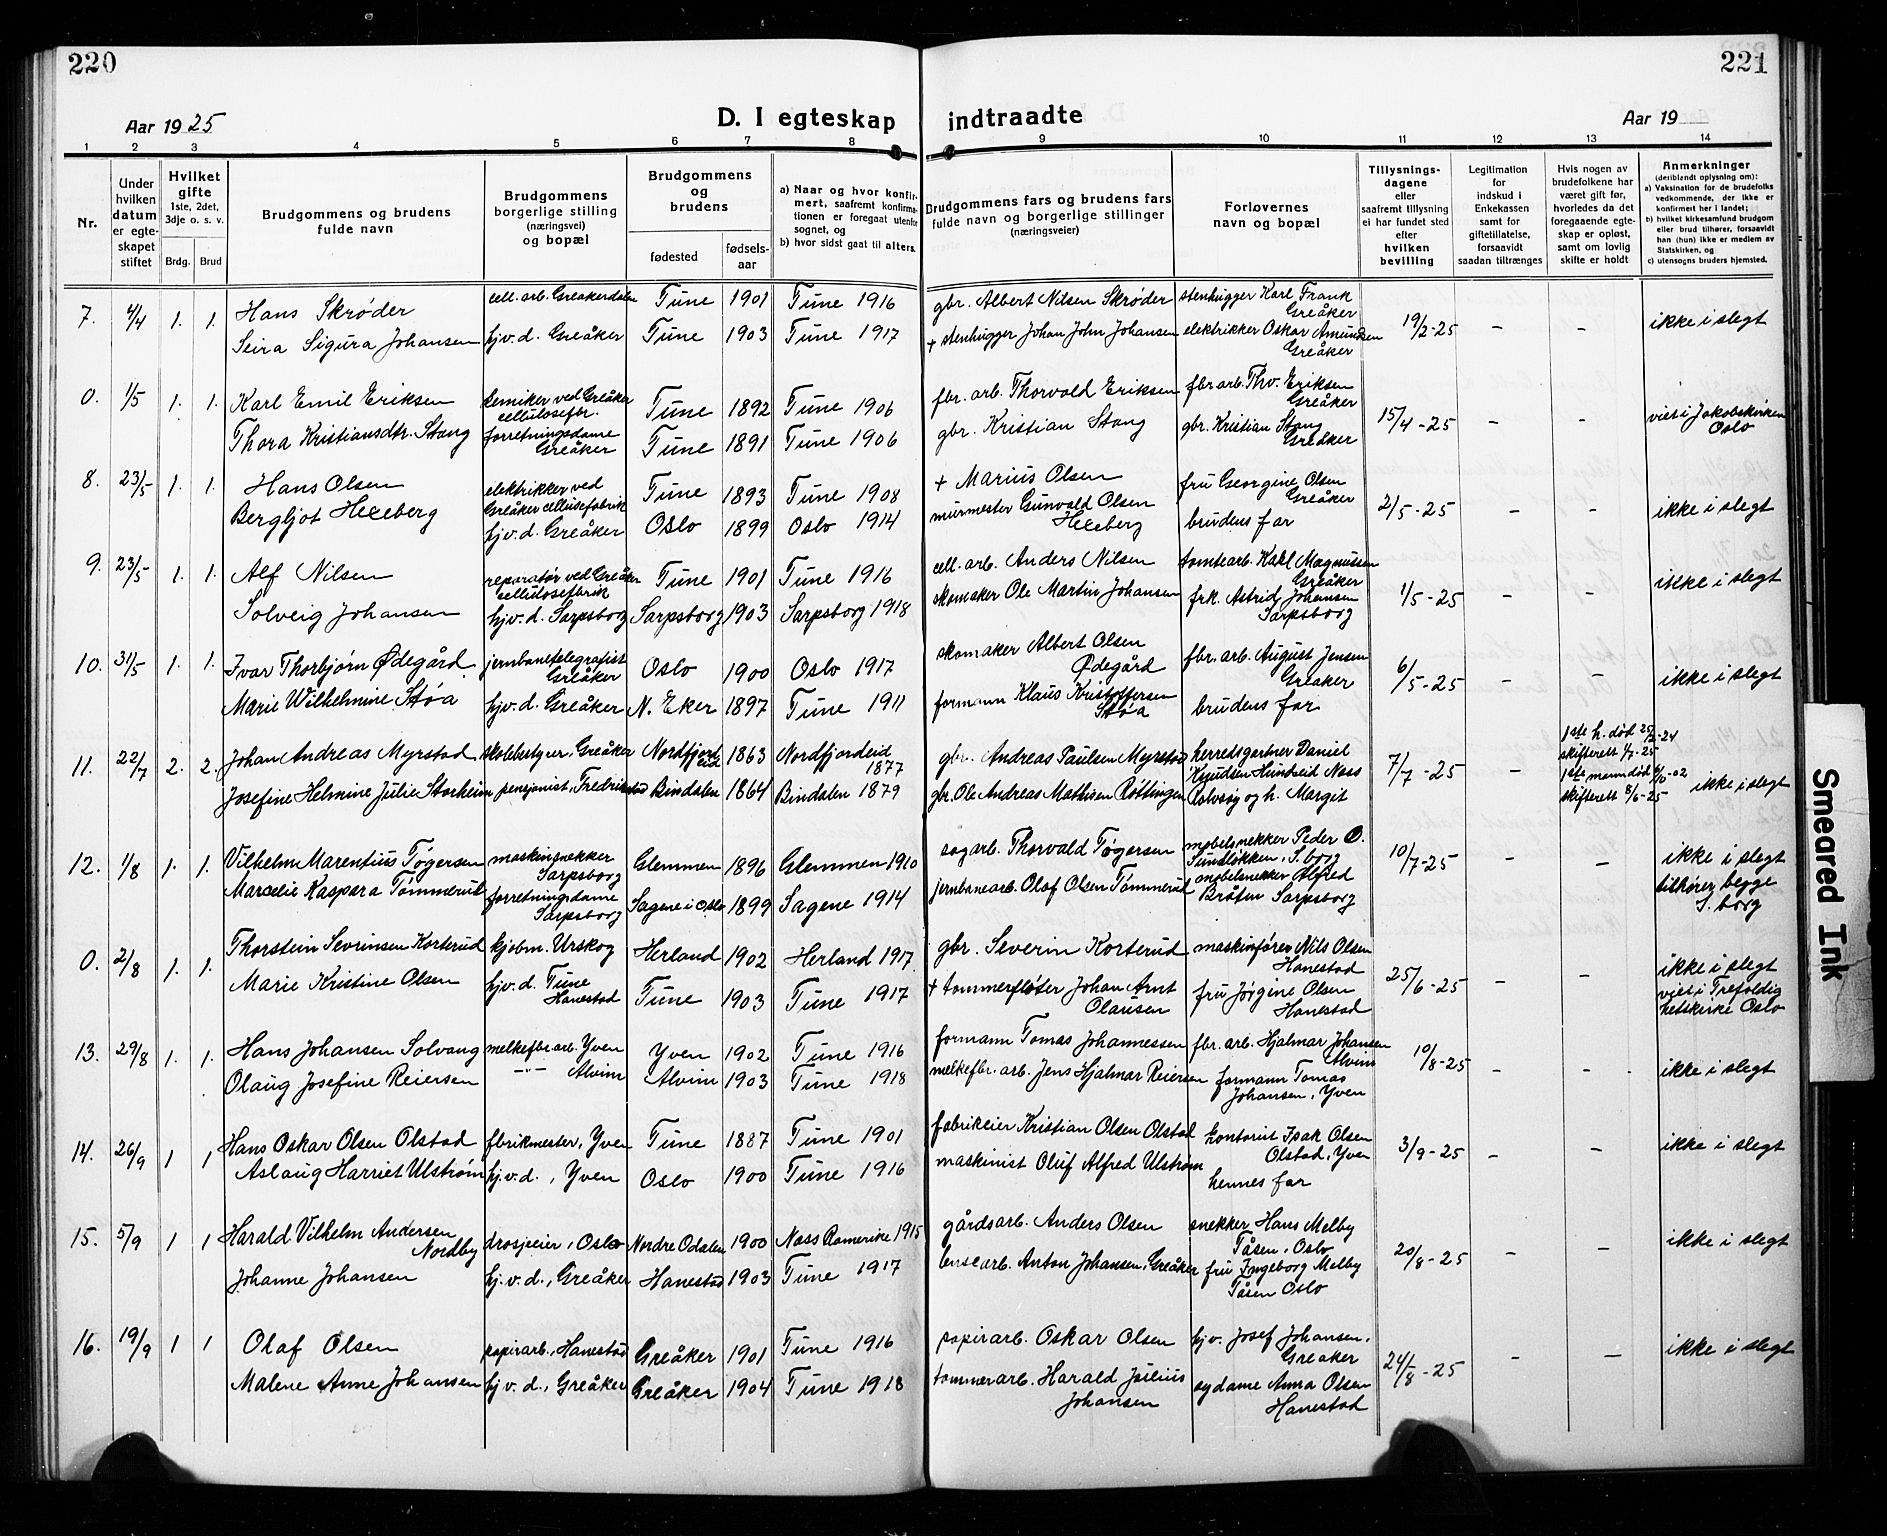 220
221
Aar 1925
D. I egteskap indtraadte
Aar 19
1 2 3 4 5 6 7 8 9 10 11 12 13 14
Nr.
Under hvilken datum er egteskapet stiftet
Hvilket gifte 1ste, 2det, 3dje o. s. v.
Brdg. Brud
Brudgommens og brudens fulde navn
Brudgommens borgerlige stilling (næringsvei) og bopæl
Brudgommens og brudens
fødested
fødselsaar
a) Naar og hvor konfirmert, saafremt konfirmationen er foregaat utenfor sognet, og
b) hvor sidst gaat til alters.
Brudgommens fars og brudens fars fulde navn og borgerlige stillinger (næringsveier)
Forlovernes navn og bopæl
Tillysningsdagene eller saafremt tillysning ei har fundet sted efter hvilken bevilling
Legitimation for indskud i Enkekassen samt for giftetillatelse, forsaavidt saadan tiltrænges
Hvis nogen av brudefolkene har været gift før, hvorledes da det foregaaende egteskap er opløst, samt om lovlig skifte er holdt
Anmerkninger (deriblandt oplysning om):
a) Vaksination for de brudefolks vedkommende, der ikke er konfirmert her i landet;
b) hvilket kirkesamfund brudgom eller brud tilhører, forsaavidt han (hun) ikke er medlem av Statskirken, og
c) utensogns bruders hjemsted.
7. 4/4 1. 1. Hans Skrøder cell. arb. Greakerdalen Tune 1901 Tune 1916 gbr. Albert Nilsen Skrøder stenhugger Karl Frank Greåker 19/2-25 - - ikke i slegt
Seira Sigura Johansen hj.v.d. Greåker Tune 1903 Tune 1917 + stenhugger Johan John Johansen elektrikker Oskar Amundsen Greåker
0. 1/5 1. 1. Karl Emil Eriksen kemiker ved Greåker cellulosefbr. Tune 1892 Tune 1906 fbr. arb. Thorvald Eriksen fbr. arb. Thv. Eriksen Greåker 15/4-25 - - viet i Jakobskirken Oslo
Thora Kristiansdtr. Stang forretningsdame Greåker Tune 1891 Tune 1906 gbr. Kristian Stang gbr. Kristian Stang Greåker
8. 23/5 1. 1. Hans Olsen elektrikker ved Greåker cellusefabrik Tune 1893 Tune 1908 + Marius Olsen fru Georgine Olsen Greåker 2/5-25 - - ikke i slegt
Bergljot Hexeberg hj.v.d. Greåker Oslo 1899 Oslo 1914 murmester Gunvald Olsen Hexeberg brudens far
9. 23/5 1. 1. Alf Nilsen reparatør ved Greåker cellulosefbrik Tune 1901 Tune 1916 cell. arb. Anders Nilsen tomtearb. Karl Magnussen Greåker 1/5-25 - - ikke i slegt
Solveig Johansen hjv. d. Sarpsborg Sarpsborg 1903 Sarpsborg 1918 skomaker Ole Martin Johansen frk. Astrid Johansen Sarpsborg
10. 31/5 1. 1. Ivar Thorbjørn Ødegård jernbanetelegrafist Greåker Oslo 1900 Oslo 1917 skomaker Albert Olsen Ødegård fbr. arb. August Jensen Greaker 6/5-25 - - ikke i slegt
Marie Wilhelmine Støa hjv. d. Greåker N. Eker 1897 Tune 1911 formann Klaus Kristoffersen Støa brudens far
11. 22/7 2. 2. Johan Andreas Myrstad skolebstyrer, Greåker Nordfjordeid 1863 Nordfjordeid 1877 gbr. Andreas Paulsen Myrstad herredsgartner Daniel Knudsen Hundseid Nøss 7/7-25 - 1ste h. død 25/2-24 skifterett 1/7-25 ikke i slegt
Josefine Helmine Julie Storheim pensjonist, Fredrikstad Bindalen 1864 Bindalen 1879 gbr. Ole Andreas Mathisen og h. Margit 1ste mann død -02 skifterett 8/6-25
12. 1/8 1. 1. Vilhelm Marentius Tøgersen maskinsnekker Sarpsborg Glemmen 1896 Glemmen 1910 sagarb. Thorvald Tøgersen møbelsnekker Peder O. Tundløkken, S.borg 10/7-25 - - ikke i slegt tilhører begge S. borg
Marcelie Kaspara Tømmerud forretningsdame Sarpsborg Sagene i Oslo 1899 Sagene 1914 jernbanearb. Olaf Olsen Tømmerud møbelsnekker Alfred Bråten Sarpsborg
0. 2/8 1. 1. Thorstein Sevrinsen Korterud kjøbm. Urskog Herland 1902 Herland 1917. gbr. Severin Korterud maskinfører Nils Olsen Hanestad 25/6-25 - - ikke i slegt viet i Trefoldighetskirke Oslo
Marie Kristine Olsen hjv. d. Tune Hanestad Tune 1903 Tune 1917 + tømmerfløter Johan Arnt Olausen fru Jørgine Olsen Hanestad
13. 29/8 1. 1. Hans Johansen Solvang melkefbr. arb. Yven Yven 1902 Tune 1916 formann Tomas Johannessen fbr. arb. Hjalmar Johansen Alvim 10/8-25 - - ikke i slegt
Olaug Josefine Reiersen -"- Alvim Alvim 1903 Tune 1918 melkefbr. arb. Jens Hjalmar Reiersen formann Tomas Johansen, Yven
14. 26/9 1 1 Hans Oskar Olsen Olstad fbrikmester, Yven Tune 1887 Tune 1901 fabrikeier Kristian Olsen Olstad kontorist Isak Olsen Olstad, Yven 3/9-25 - - ikke i slegt
Aslaug Harriet Ulstrøm hj.v.d., Yven Oslo 1900 Tune 1916 maskinist Oluf Alfred Ulstrøm hennes far
15. 5/9 1 1 Harald Vilhelm Andersen Nordby drosjeeier, Oslo Nordre Odalen 1900 Nøss Romerike 1915 gårdsarb. Anders Olsen snekker Hans Melby Tåsen, Oslo 20/8-25 - - ikke i slegt
Johanne Johansen hj.v.d., Greåker Hanestad 1903 Tune 1917 lensearb. Anton Johansen, Greåker fru Ingeborg Melby Tåsen Oslo
16. 19/9 1 1 Olaf Olsen papirarb., Hanestad Greåker 1901 Tune 1916 papirarb. Oskar Olsen hjv. Josef Johansen, Greaker 24/8-25 - - ikke i slegt
Malene Anne Johansen hj.v.d., Greåker Greåker 1904 Tune 1918 tømmerarb. Harald Julius Johansen sydame Anna Olsen Hanestad
Smeared Ink